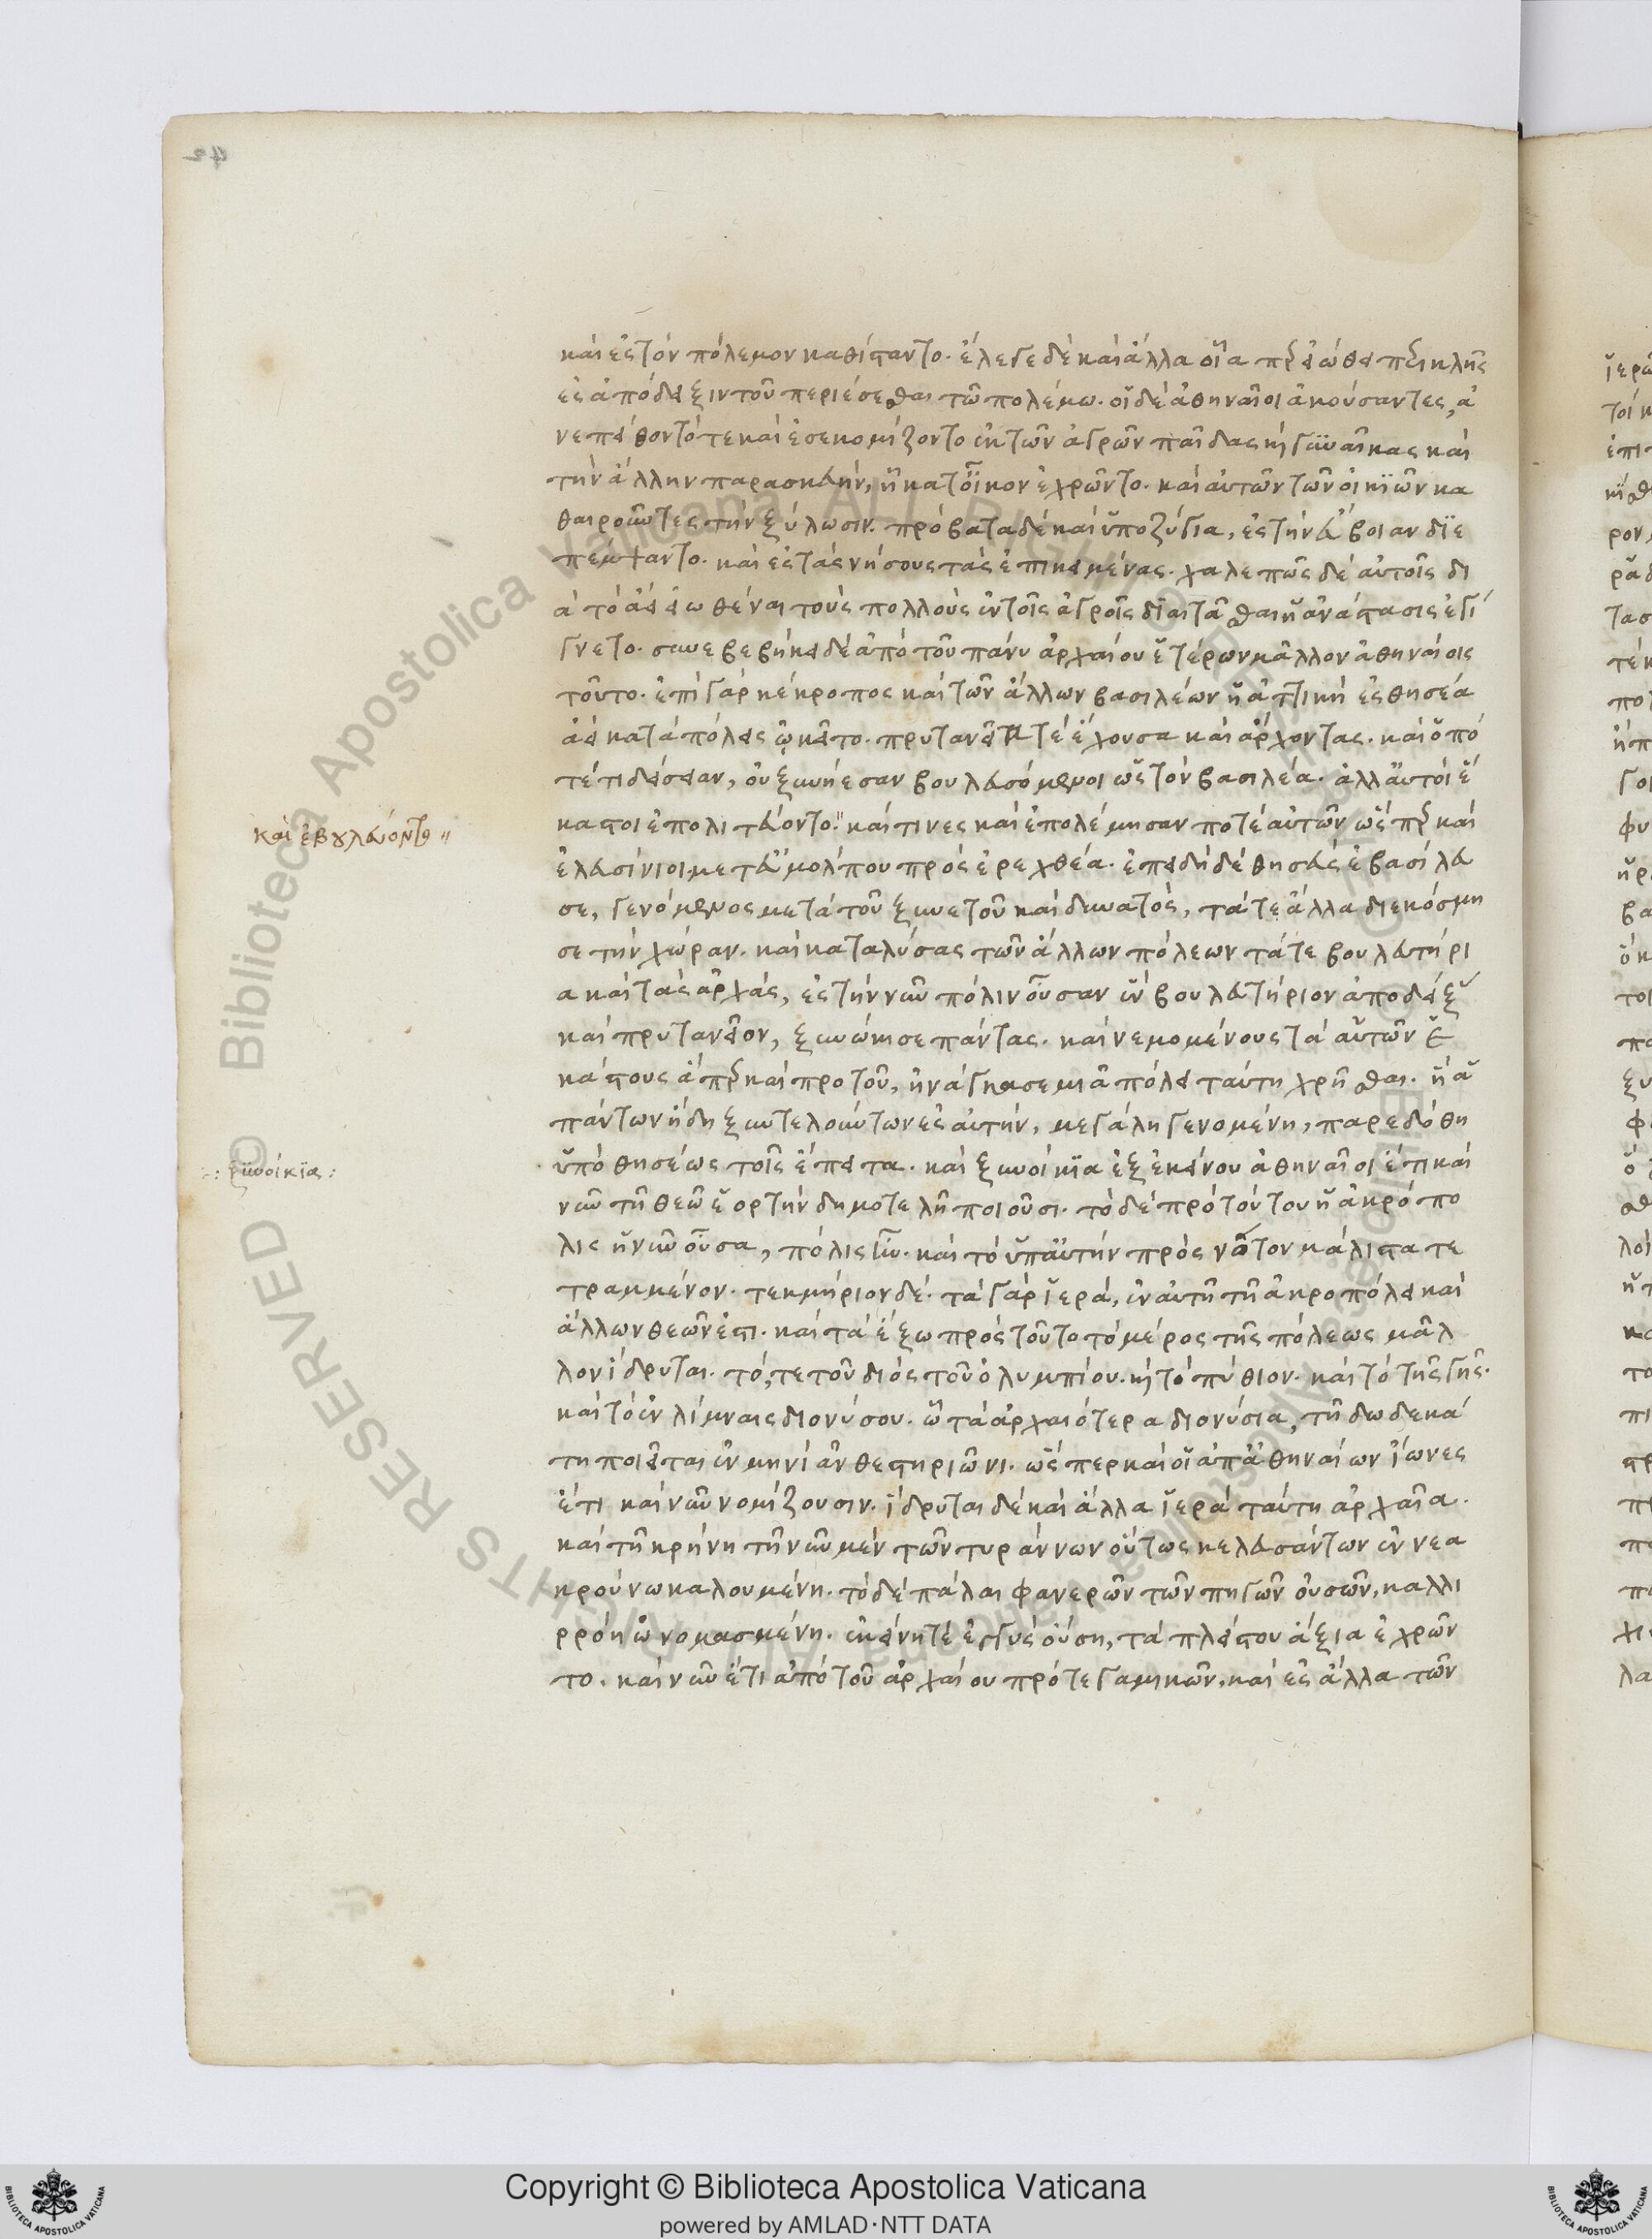 καὶ ἐς τὸν πόλεμον καθίσταντο. ἔλεγε δὲ καὶ ἄλλα οἷα περ εἰώθει περικλῆς
ἐς ἀπόδειξιν τοῦ περιέσεσθαι τῶ πολέμω. οἱ δὲ ἀθηναῖοι ἀκούσαντες, ἀ
νεπείθοντό τε καὶ ἐσεκομίζοντο ἐκ τῶν ἀγρῶν παῖδας καὶ γυναῖκας καὶ
τὴν ἄλλην παρασκευήν, ἧ κατ οἶκον ἐχρῶντο. καὶ αὐτῶν τῶν οἰκιῶν κα
θαιροῦντες τὴν ξύλωσιν. πρόβατα δὲ καὶ ὑποζύγια, ἐς τὴν εὔβοιαν διε
πέμψαντο. καὶ ἐς τὰς νήσους τὰς ἐπικειμένας. χαλεπῶς δὲ αὐτοῖς δι
ὰ τὸ ἀεὶ εἰωθέναι τοὺς πολλοὺς ἐν τοῖς ἀγροῖς διαιτᾶσθαι ἡ ἀνάστασις ἐγί
γνετο. συνεβεβήκει δὲ ἀπὸ τοῦ πάνυ ἀρχαίου ἑτέρων μᾶλλον ἀθηναίοις
τοῦτο. ἐπὶ γὰρ κέκροπος καὶ τῶν ἄλλων βασιλέων ἡ ἀττικὴ ἐς θησέα
ἀεὶ κατὰ πόλεις ὠκεῖτο. πρυτανεῖά τε ἔχουσα καὶ ἄρχοντας. καὶ ὁπό
τέ τι δείσειαν, οὐ ξυνήεσαν βουλευσόμενοι ὡς τὸν βασιλέα. ἀλλ αὐτοὶ ἕ
καστοι ἐπολιτεύοντο. καί τινες καὶ ἐπολέμησάν ποτε αὐτῶν ὥσπερ καὶ
ἐλευσίνιοι μετ εὐμόλπου πρὸς ἐρεχθέα. ἐπειδὴ δὲ θησεὺς ἐβασίλευ
σε, γενόμενος μετὰ τοῦ ξυνετοῦ καὶ δυνατός, τά τε ἄλλα διεκόσμη
σε τὴν χώραν. καὶ καταλύσας τῶν ἄλλων πόλεων τά τε βουλευτήρι
α καὶ τὰς ἀρχάς, ἐς τὴν νῦν πόλιν οὖσαν ἓν βουλευτήριον ἀποδείξ
καὶ πρυτανεῖον, ξυνώκισε πάντας. καὶ νεμομένους τὰ αὑτῶν ἑ
κάστους ἅπερ καὶ πρὸ τοῦ, ἠνάγκασε μιᾶ πόλει ταύτη χρῆσθαι. ἡ ἁ
πάντων ἤδη ξυντελούντων ἐς αὐτήν, μεγάλη γενομένη, παρεδόθη
ὑπὸ θησέως τοῖς ἔπειτα. καὶ ξυνοίκια ἐξ ἐκείνου ἀθηναῖοι ἔτι καὶ
νῦν τῆ θεῶ ἑορτὴν δημοτελῆ ποιοῦσι. τὸ δὲ πρὸ τούτου ἡ ἀκρόπο
λις ἡ νῦν οὖσα, πόλις ἦν. καὶ τὸ ὑπ αὐτὴν πρὸς νότον μάλιστα τε
τραμμένον. τεκμήριον δέ. τὰ γὰρ ἱερά, ἐν αὐτῆ τῆ ἀκροπόλει καὶ
ἄλλων θεῶν ἐστι. καὶ τὰ ἔξω πρὸς τοῦτο τὸ μέρος τῆς πόλεως μᾶλ
λον ἵδρυται. τό, τε τοῦ διὸς τοῦ ὀλυμπίου. καὶ τὸ πύθιον. καὶ τὸ τῆς γῆς.
καὶ τὸ ἐν λίμναις διονύσου. ὧ τὰ ἀρχαιότερα διονύσια, τῆ δωδεκά
τη ποιεῖται ἐν μηνὶ ἀνθεστηριῶνι. ὥσπερ καὶ οἱ ἀπ ἀθηναίων ἴωνες
ἔτι καὶ νῦν νομίζουσιν. ἵδρυται δὲ καὶ ἄλλα ἱερὰ ταύτη ἀρχαῖα.
καὶ τῆ κρήνη τῆ νῦν μὲν τῶν τυράννων οὕτως κελευσάντων ἐννεα
κρούνω καλουμένη. τὸ δὲ πάλαι φανερῶν τῶν πηγῶν οὐσῶν, καλλι
ρρόη ὠνομασμένη. ἐκείνη τε ἐγγὺς οὔση, τὰ πλείστου ἄξια ἐχρῶν
το. καὶ νῦν ἔτι ἀπὸ τοῦ ἀρχαίου πρό τε γαμικῶν, καὶ ἐς ἄλλα τῶν
καὶ ἐβουλεύοντο
: ξυνοίκια :
42
Copyright © Biblioteca Apostolica Vaticana
powered by AMLAD·NTT DATA